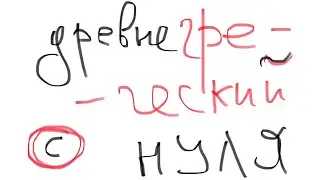 древнегре-
-ческий
с нуля